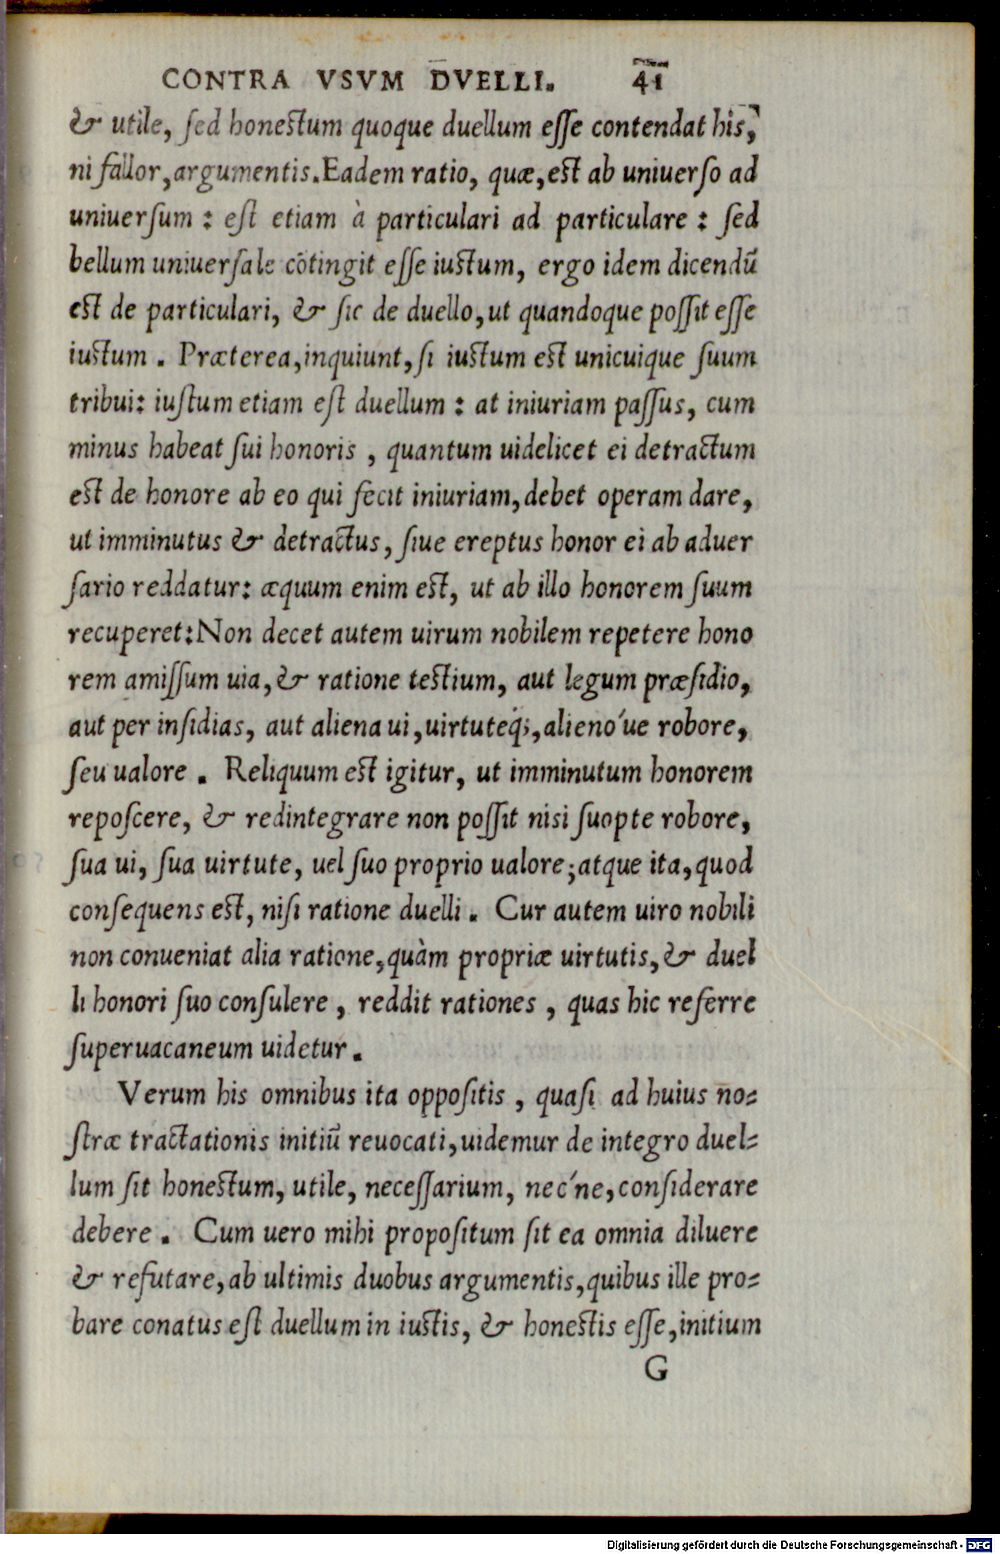 CONTRA VSVM DVELLI. 41
& utile, sed honestum quoque duellum esse contendat his,
ni fallor, argumentis. Eadem ratio, quæ, est ab uniuerso ad
uniuersum : est etiam à particulari ad particulare : sed
bellum uniuersale cōtingit esse iustum, ergo idem dicendū
est de particulari, & sic de duello, ut quandoque possit esse
iustum . Præterea, inquiunt, si iustum est unicuique suum
tribui: iustum etiam est duellum : at iniuriam passus, cum
minus habeat sui honoris , quantum uidelicet ei detractum
est de honore ab eo qui fecit iniuriam, debet operam dare,
ut imminutus & detractus, siue ereptus honor ei ab aduer
sario reddatur: æquum enim est, ut ab illo honorem suum
recuperet: Non decet autem uirum nobilem repetere hono
rem amissum uia, & ratione testium, aut legum præsidio,
aut per insidias, aut aliena ui, uirtuteq́;, alieno´ue robore,
seu ualore . Reliquum est igitur, ut imminutum honorem
reposcere, & redintegrare non possit nisi suopte robore,
sua ui, sua uirtute, uel suo proprio ualore; atque ita, quod
consequens est, nisi ratione duelli . Cur autem uiro nobili
non conueniat alia ratione, quàm propriæ uirtutis, & duel
li honori suo consulere , reddit rationes , quas hic referre
superuacaneum uidetur .
Verum his omnibus ita oppositis , quasi ad huius no=
stræ tractationis initiū reuocati, uidemur de integro duel=
lum sit honestum, utile, necessarium, nec´ne, considerare
debere . Cum uero mihi propositum sit ea omnia diluere
& refutare, ab ultimis duobus argumentis, quibus ille pro=
bare conatus est duellum in iustis, & honestis esse, initium
G
Digitalisierung gefördert durch die Deutsche Forschungsgemeinschaft - DFG